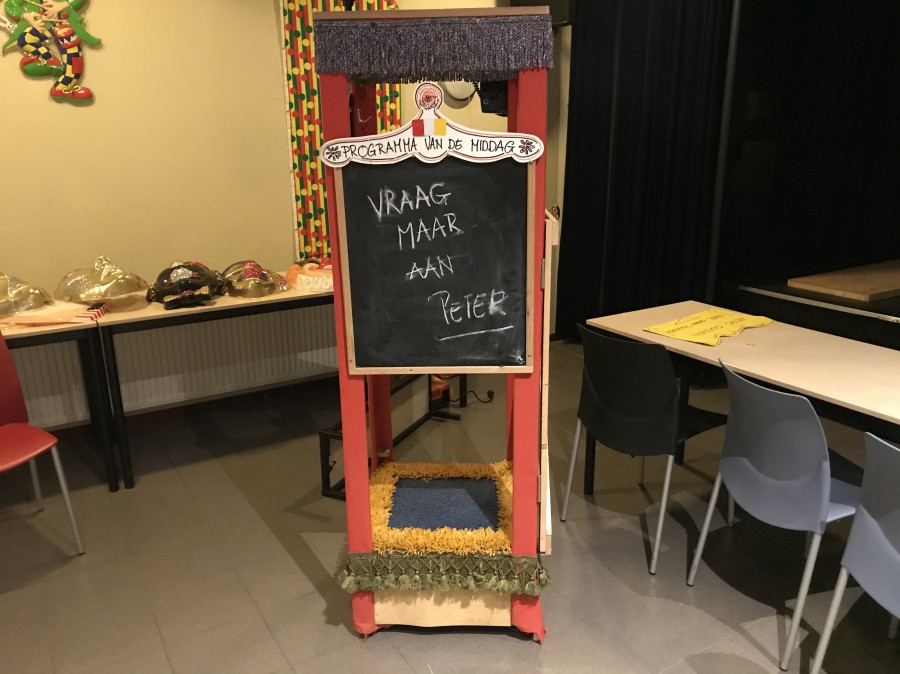 PROGRAMMA VAN DE MIDDAG
VRAAG
MAAR
AAN
PETER